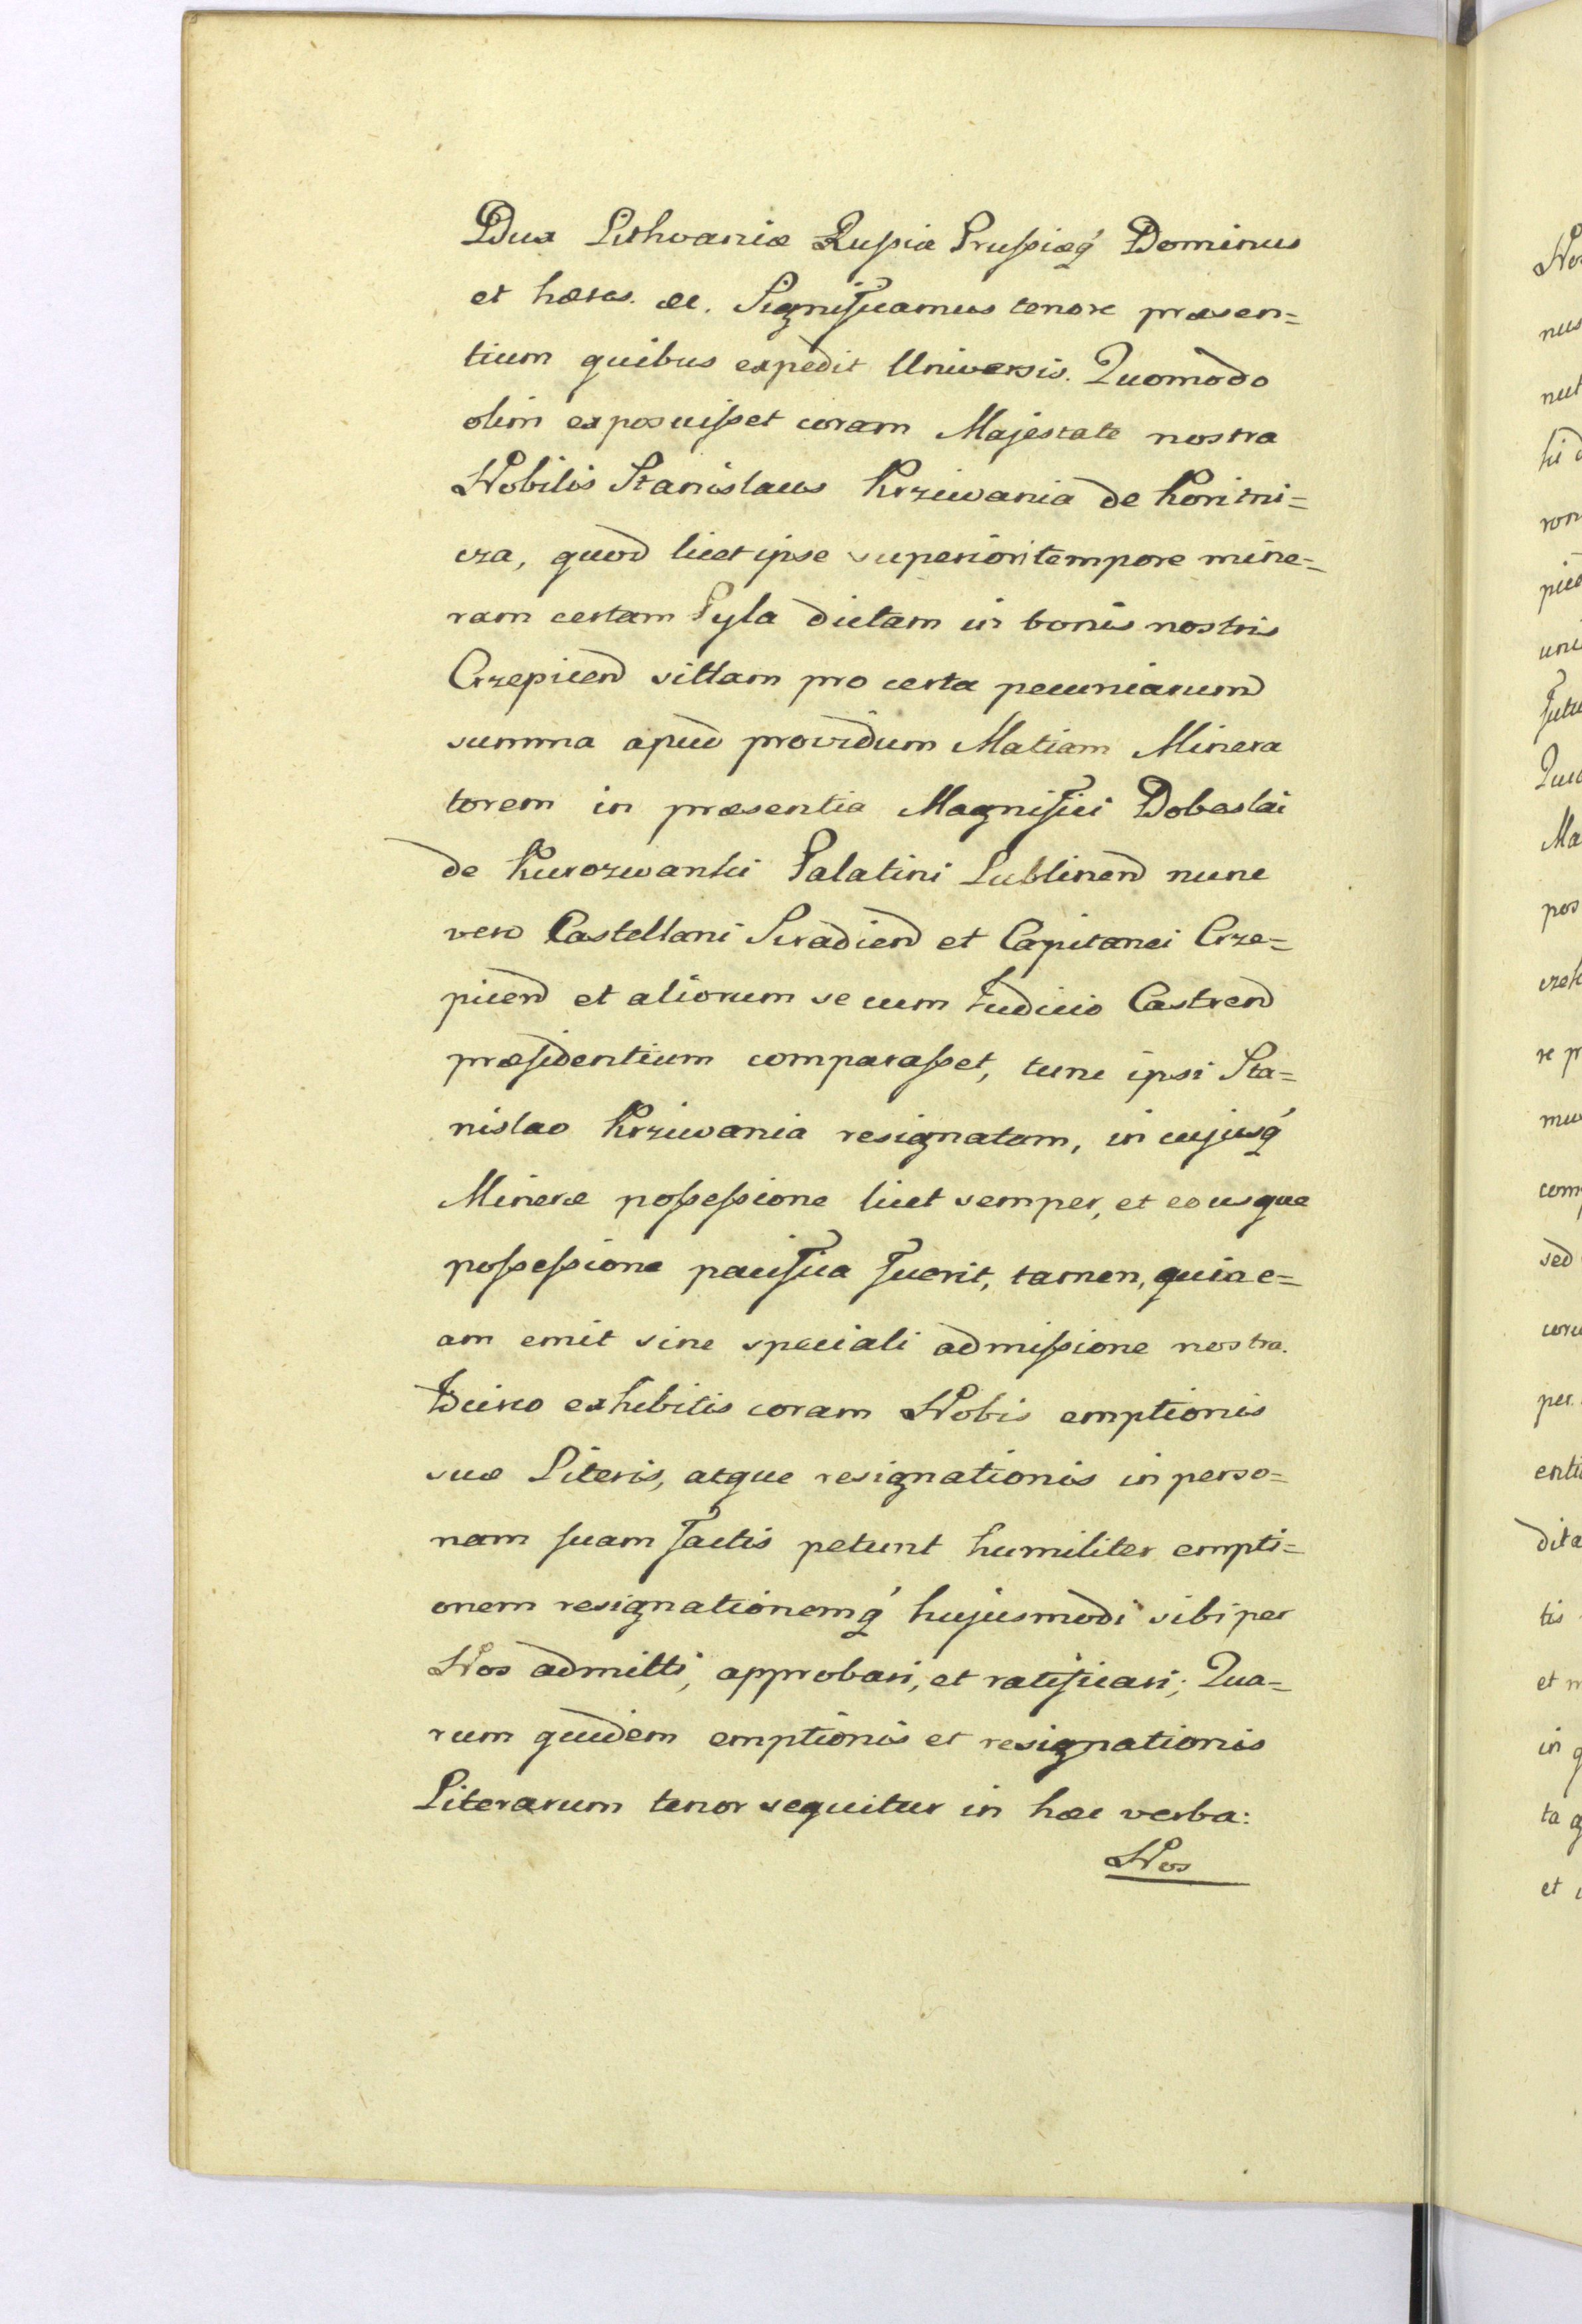 Dux Lithvaniæ Rußia Prußiæq́ Dominus
et hæres. etc. Significamus tenore præsen=
tium quibus expedit Universis. Quomodo
olim exposuißet coram Majestate nostra
Nobilis Stanislaus Krziwania de Koritni=
cza, quod licet ipse superiori tempore mine=
ram certam Pyla dictam in bonis nostris
Crzepicen̄ sittam pro certa pecuniarum
summa apud providum Matiam Minera
torem in præsentia Magnifici Dobeslai
de Kurozwanki Palatini Lublinen̄ nunc
vero Castellani Siradien̄ et Capitanei Crze=
picen̄ et aliorum secum Iudicio Castren̄
præsidentium comparaßet, tunc ipsi Sta=
nislao Krziwania resignatam, in cujusq́
Mineræ poßeßione licet semper, et eousque
poßeßione pacifica fuerit, tamen, quia e=
am emit sine speciali admißione nostra.
Idcirco exhibitis coram Nobis emptionis
suæ Literis, atque resignationis in perso=
nam suam factis petunt humiliter empti=
onem resignationemq́ hujusmodi sibi per
Nos admitti, approbari, et ratificari; Qua=
rum quidem emptionis et resignationis
Literarum tenor sequitur in hæc verba:
Nos